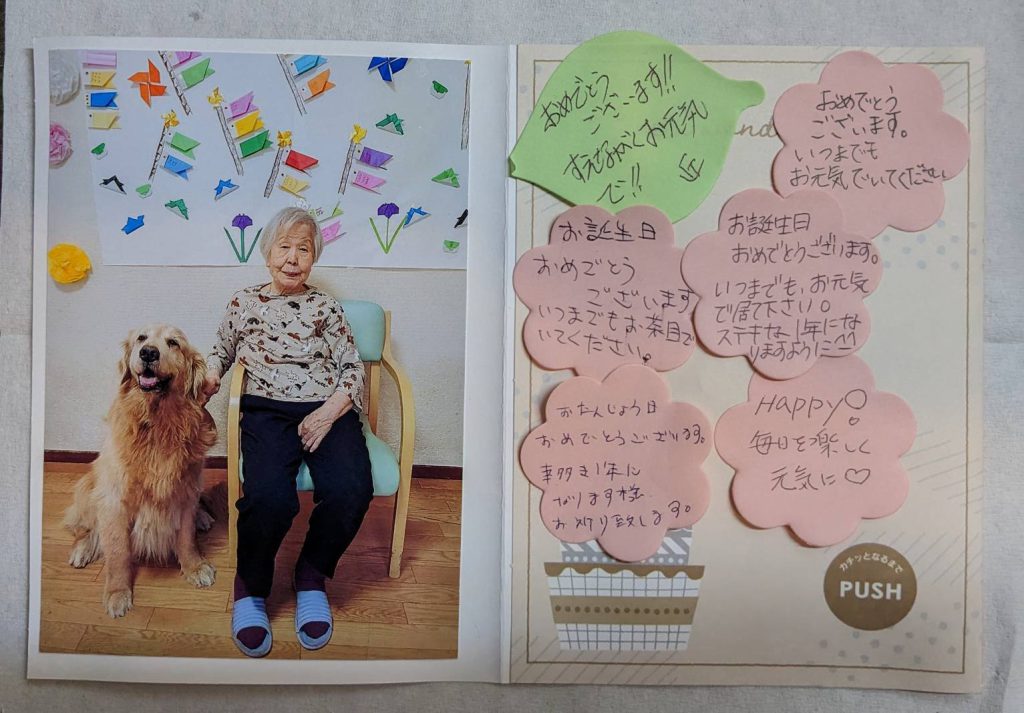 おめでとう
ございます!!
すえながくお元気
で!!
おめでとう
ございます。
いつまでも
お元気でいてください
お誕生日
おめでとう
ございます
いつまでもお茶目で
いてください。
お誕生日
おめでとうございます。
いつまでも、お元気
で居て下さい。
ステキな1年にな
りますように
おたんじょう日
おめでとうございます。
幸多き1年に
なります様
お祈り致します。
Happy!
毎日を楽しく
元気に♡
カチッとなるまで
PUSH